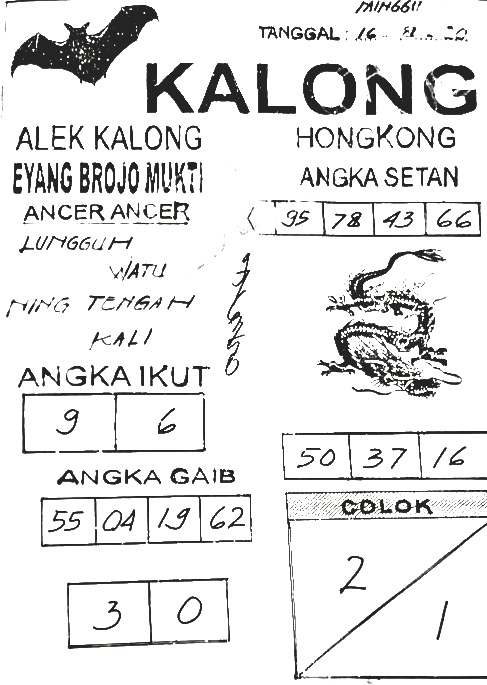 MINGGU
TANGGAL : 16 - 8 - 20
KALONG
ALEK KALONG
EYANG BROJO MUKTI
ANCER ANCER
LUNGGUH
WATU
NING TENGAH
KALI
HONGKONG
ANGKA SETAN
95 78 43 66
ANGKA IKUT
9 6
ANGKA GAIB
55 04 19 62
3 0
50 37 16
COLOK
2
1